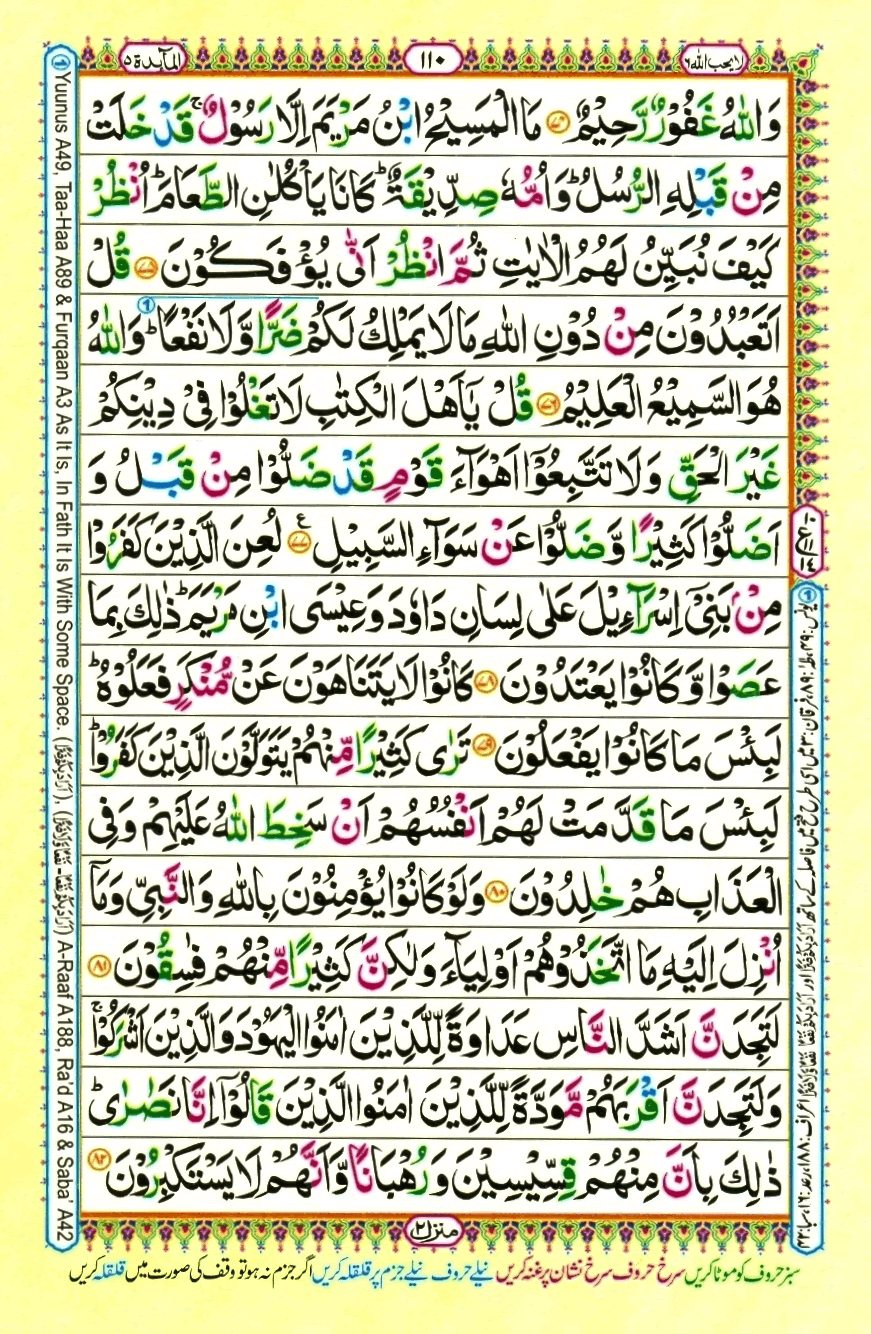 لا یحب اللہ ٦
١١٠
المآئدة ٥
وَاللّٰهُ غَفُوْرٌ رَّحِيْمٌ ﴿٧٤﴾ مَا الْمَسِيْحُ ابْنُ مَرْيَمَ اِلَّا رَسُوْلٌ ۚ قَدْ خَلَتْ
مِنْ قَبْلِهِ الرُّسُلُ ؕ وَاُمُّهٗ صِدِّيْقَةٌ ؕ كَانَا يَاْكُلٰنِ الطَّعَامَ ؕ اُنْظُرْ
كَيْفَ نُبَيِّنُ لَهُمُ الْاٰيٰتِ ثُمَّ انْظُرْ اَنّٰى يُؤْفَكُوْنَ ﴿٧٥﴾ قُلْ
اَتَعْبُدُوْنَ مِنْ دُوْنِ اللّٰهِ مَا لَا يَمْلِكُ لَكُمْ ضَرًّا وَّلَا نَفْعًا ؕ وَاللّٰهُ
هُوَ السَّمِيْعُ الْعَلِيْمُ ﴿٧٦﴾ قُلْ يٰۤاَهْلَ الْكِتٰبِ لَا تَغْلُوْا فِيْ دِيْنِكُمْ
غَيْرَ الْحَقِّ وَلَا تَتَّبِعُوْۤا اَهْوَآءَ قَوْمٍ قَدْ ضَلُّوْا مِنْ قَبْلُ وَ
اَضَلُّوْا كَثِيْرًا وَّضَلُّوْا عَنْ سَوَآءِ السَّبِيْلِ ﴿٧٧﴾ ع لُعِنَ الَّذِيْنَ كَفَرُوْا
مِنْۢ بَنِيْۤ اِسْرَآءِيْلَ عَلٰى لِسَانِ دَاوٗدَ وَعِيْسَى ابْنِ مَرْيَمَ ؕ ذٰلِكَ بِمَا
عَصَوْا وَّكَانُوْا يَعْتَدُوْنَ ﴿٧٨﴾ كَانُوْا لَا يَتَنَاهَوْنَ عَنْ مُّنْكَرٍ فَعَلُوْهُ ؕ
لَبِئْسَ مَا كَانُوْا يَفْعَلُوْنَ ﴿٧٩﴾ تَرٰى كَثِيْرًا مِّنْهُمْ يَتَوَلَّوْنَ الَّذِيْنَ كَفَرُوْا ؕ
لَبِئْسَ مَا قَدَّمَتْ لَهُمْ اَنْفُسُهُمْ اَنْ سَخِطَ اللّٰهُ عَلَيْهِمْ وَفِي
الْعَذَابِ هُمْ خٰلِدُوْنَ ﴿٨٠﴾ وَلَوْ كَانُوْا يُؤْمِنُوْنَ بِاللّٰهِ وَالنَّبِيِّ وَمَاۤ
اُنْزِلَ اِلَيْهِ مَا اتَّخَذُوْهُمْ اَوْلِيَآءَ وَلٰكِنَّ كَثِيْرًا مِّنْهُمْ فٰسِقُوْنَ ﴿٨١﴾
لَتَجِدَنَّ اَشَدَّ النَّاسِ عَدَاوَةً لِّلَّذِيْنَ اٰمَنُوا الْيَهُوْدَ وَالَّذِيْنَ اَشْرَكُوْا ۚ
وَلَتَجِدَنَّ اَقْرَبَهُمْ مَّوَدَّةً لِّلَّذِيْنَ اٰمَنُوا الَّذِيْنَ قَالُوْۤا اِنَّا نَصٰرٰى ؕ
ذٰلِكَ بِاَنَّ مِنْهُمْ قِسِّيْسِيْنَ وَرُهْبَانًا وَّاَنَّهُمْ لَا يَسْتَكْبِرُوْنَ ﴿٨٢﴾
منزل ٢
سبز حروف کو موٹا کریں سرخ حروف سرخ نشان پر غنہ کریں نیلے حروف نیلے جزم پر قلقلہ کریں اگر جزم نہ ہو تو وقف کی صورت میں قلقلہ کریں
① Yuunus A49, Taa-Haa A89 & Furqaan A3 As It Is, In Fath It Is With Some Space. A-Raaf A188, Ra'd A16 & Saba' A42